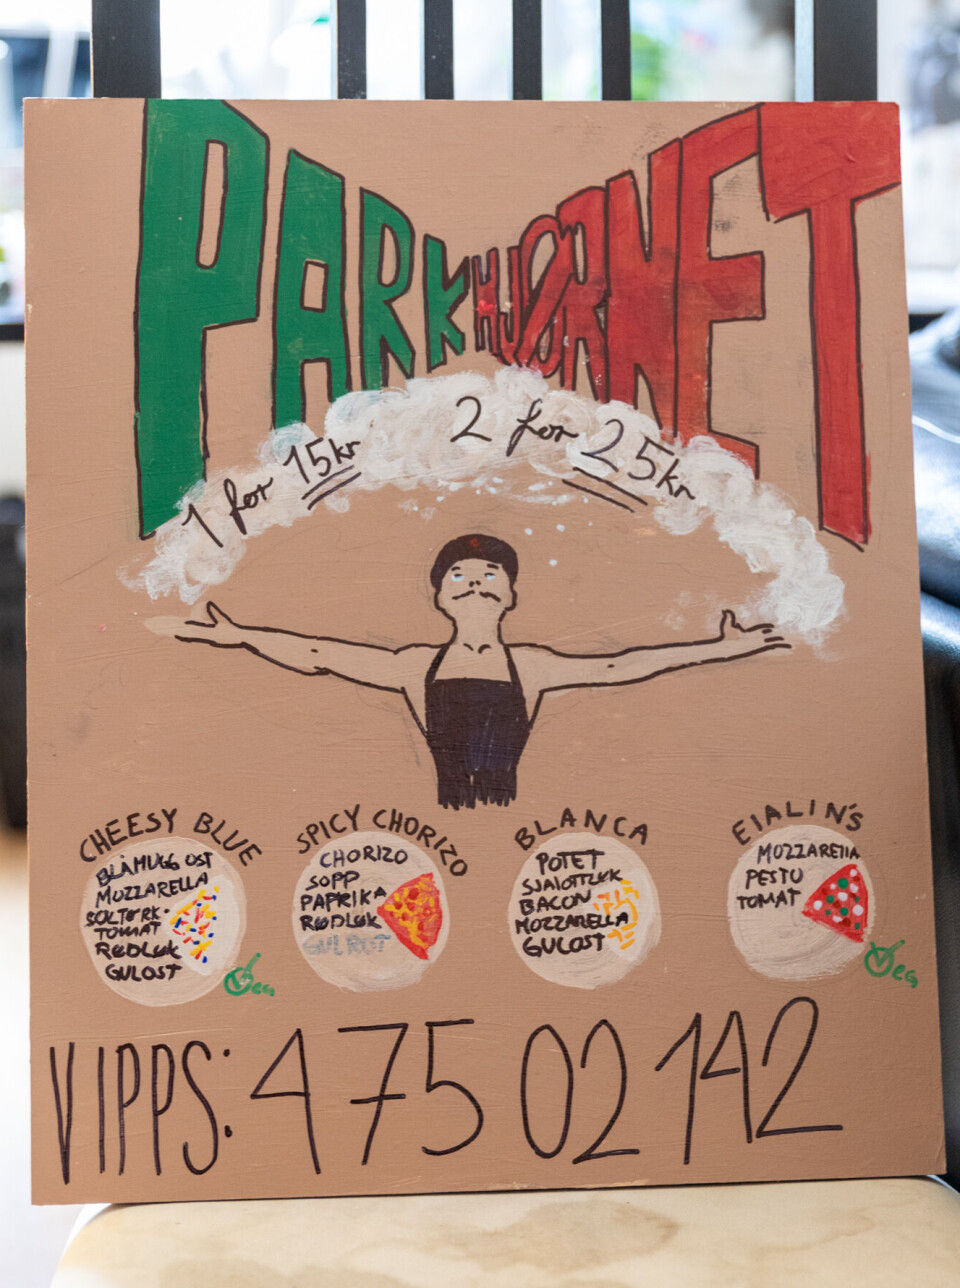 PARKHJØRNET
1 for 15kr 2 for 25kr
CHEESY BLUE
BLÅMUGG OST
MOZZARELLA
SOLTØRK.
TOMAT
RØDLØK
GULOST
Veg
SPICY CHORIZO
CHORIZO
SOPP
PAPRIKA
RØDLØK
GULROT
BLANCA
POTET
SJALOTTLØK
BACON
MOZZARELLA
GULOST
EIALIN'S
MOZZARELLA
PESTO
TOMAT
Veg
VIPPS: 475 02 142